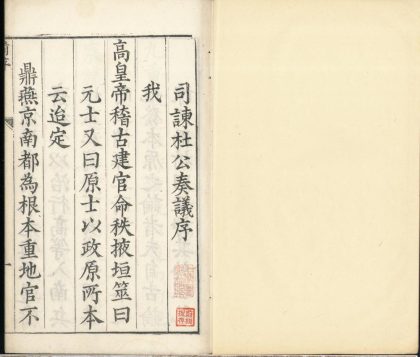 司諫杜公奏議序
我
高皇帝稽古建官命秩掖垣筮曰
元士又曰原士以政原所本
云迨定
鼎燕京南都為根本重地官不